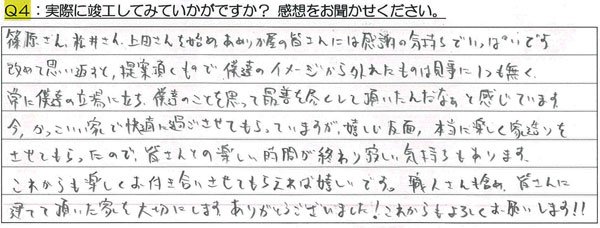 Q4：実際に竣工してみていかがですか？ 感想をお聞かせください。
篠原さん、松井さん、上田さんを始め、あめりか屋の皆さんには感謝の気持ちでいっぱいです
改めて思い返すと、提案頂くもので僕達のイメージから外れたものは見事に1つも無く、
常に僕達の立場に立ち、僕達のことを思って最善を尽くして頂いたんだなぁと感じています
今、かっこいい家で快適に過ごさせてもらっていますが、嬉しい反面、本当に楽しく家造りを
させてもらったので、皆さんとの楽しい時間が終わり寂しい気持ちもあります。
これからも楽しくお付き合いさせてもらえれば嬉しいです。職人さんも含め、皆さんに
建てて頂いた家を大切にします ありがとうございました！これからもよろしくお願いします!!